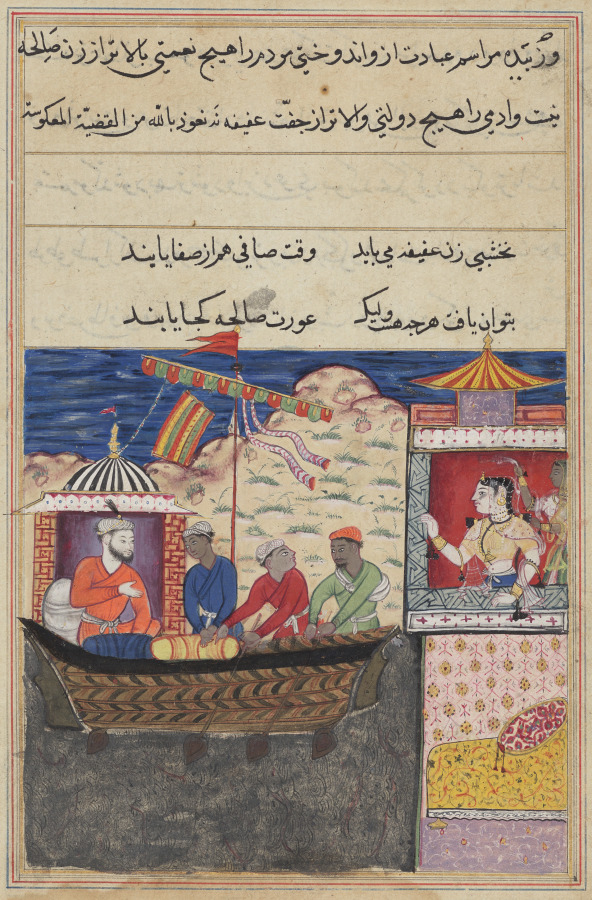 مراسم عبادت ازو اندوختی مردم را هیچ نعمتی بالاتر از زن صالحه
نیست وادمی را هیچ دولتی والاتر از جفت عفیفه نه نعوذ بالله من القضیّة المعکوسة
نخشبی زن عفیفه می باید وقت صافی هم از صفا یابند
بتوان یافت هرچه هست ولیک عورت صالحه کجا یابند